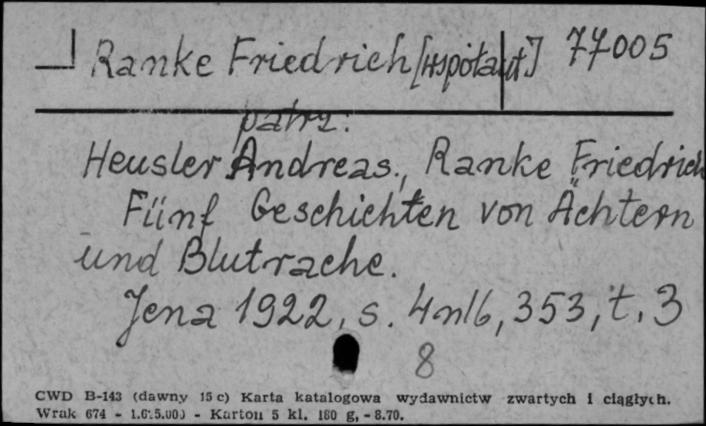 Ranke Friedrich [współaut.] 77005
patrz:
Heusler Andreas., Ranke Friedrich
Fünf Geschichten von Ächtern
und Blutrache.
Jena 1922, s. 4nlb, 353, t. 3
8
CWD B-143 (dawny 15 c) Karta katalogowa wydawnictw zwartych i ciągłych.
Wrak 674 - 1.615.000 - Karton 5 kl. 180 g, - 8.70.